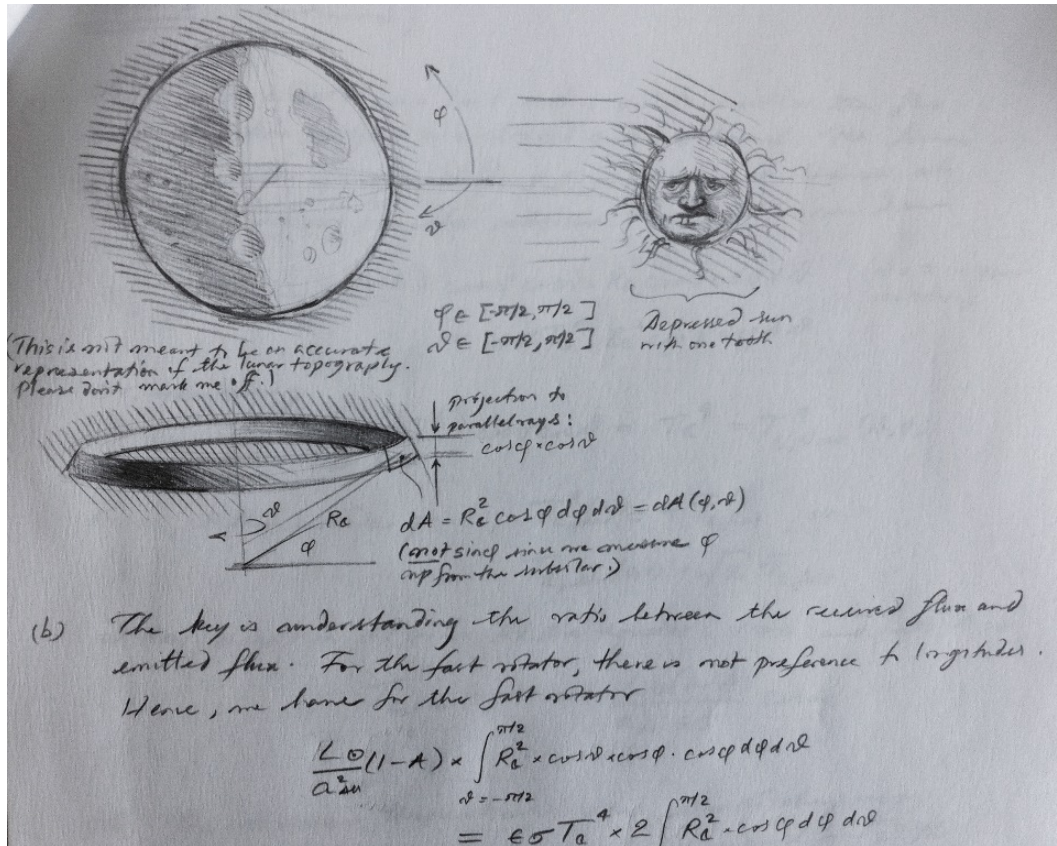 φ
ϑ
φ ∈ [-π/2, π/2]
ϑ ∈ [-π/2, π/2]
Depressed sun
with one tooth
(This is not meant to be an accurate
representation of the lunar topography.
Please don't mark me off.)
projection to
parallel rays:
cosφ × cosϑ
ϑ
R☾
φ
dA = R☾² cosφ dφ dϑ = dA(φ,ϑ)
(not sinφ since we measure φ
up from the subsolar.)
(b) The key is understanding the ratio between the received flux and
emitted flux. For the fast rotator, there is not preference to longitudes.
Hence, we have for the fast rotator
L☉/a² (1-A) × ∫ R☾² × cosϑ × cosφ · cosφ dφ dϑ
π/2
ϑ = -π/2
= εσT☾⁴ × 2 ∫ R☾² · cosφ dφ dϑ
π/2